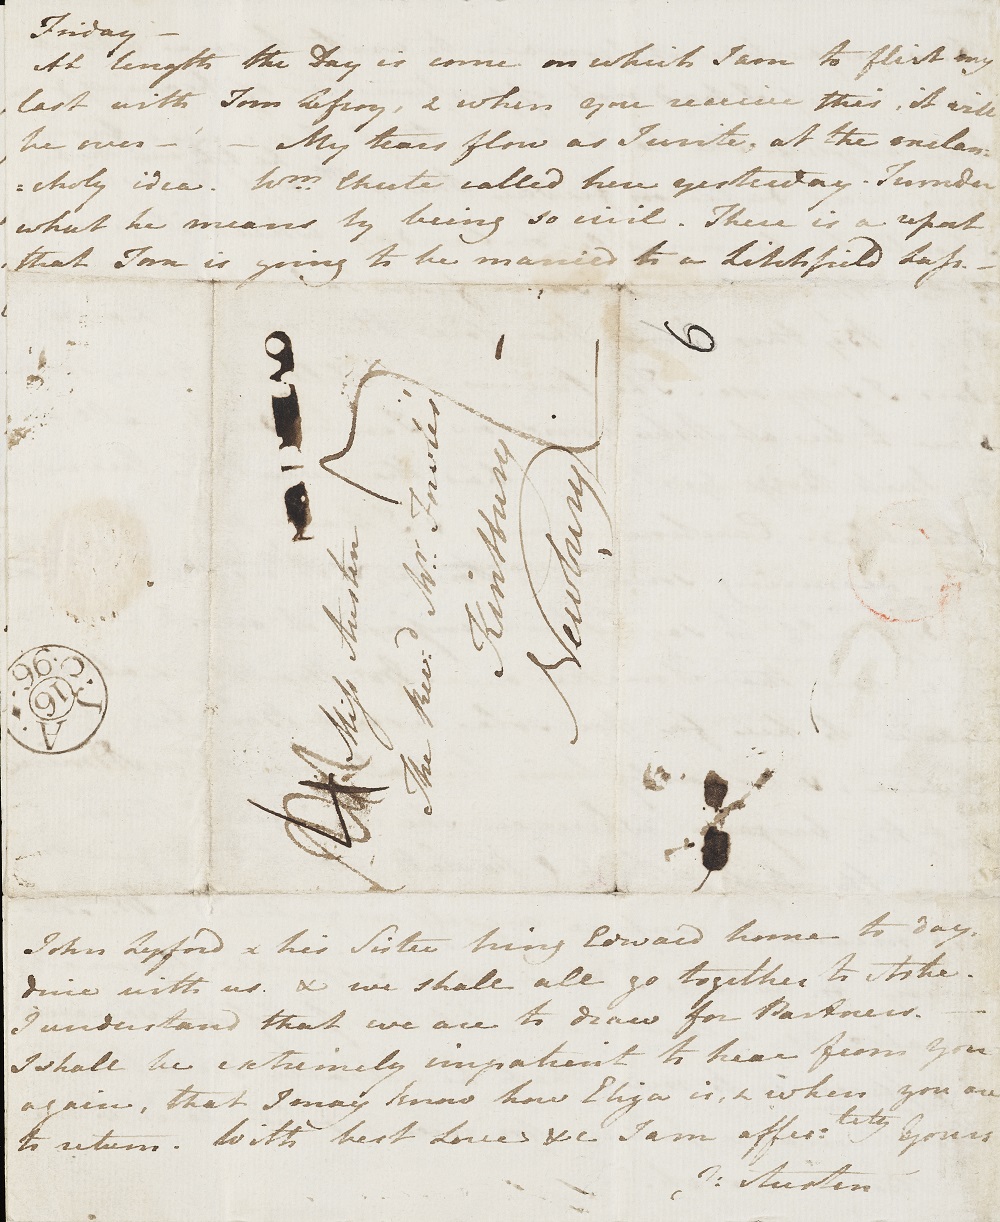 Friday —
At length the Day is come on which I am to flirt my
last with Tom Lefroy, & when you receive this, it will
be over — — My tears flow as I write, at the melan:
:choly idea. Wm. Chute called here yesterday. I wonder
what he means by being so civil. There is a report
that Tom is going to be married to a Litchfield Lass. —
6
Miss Austen
The Revd. Mr. Fowle's
Kintbury
Newbury
JA
16
C.96
4
John Lyford & his Sister bring Edward home to day,
dine with us, & we shall all go together to Ashe.
I understand that we are to draw for Partners. —
I shall be extremely impatient to hear from you
again, that I may know how Eliza is, & when you are
to return. With best Love &c I am affec:tely Yours
J: Austen